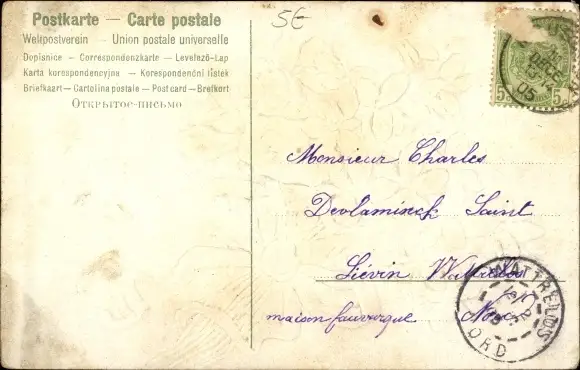 Postkarte — Carte postale
Weltpostverein — Union postale universelle
Dopisnice — Correspondenzkarte — Levelező-Lap
Karta korespondencyjna — Korespondenční lístek
Briefkaart — Cartolina postale — Post card — Brefkort
Открытое-письмо
5€
5 5
DECE
05
Monsieur Charles
Devlaminck Saint
Liévin Wattrelos
Nord
maison fauvarque
WATTRELOS
NORD